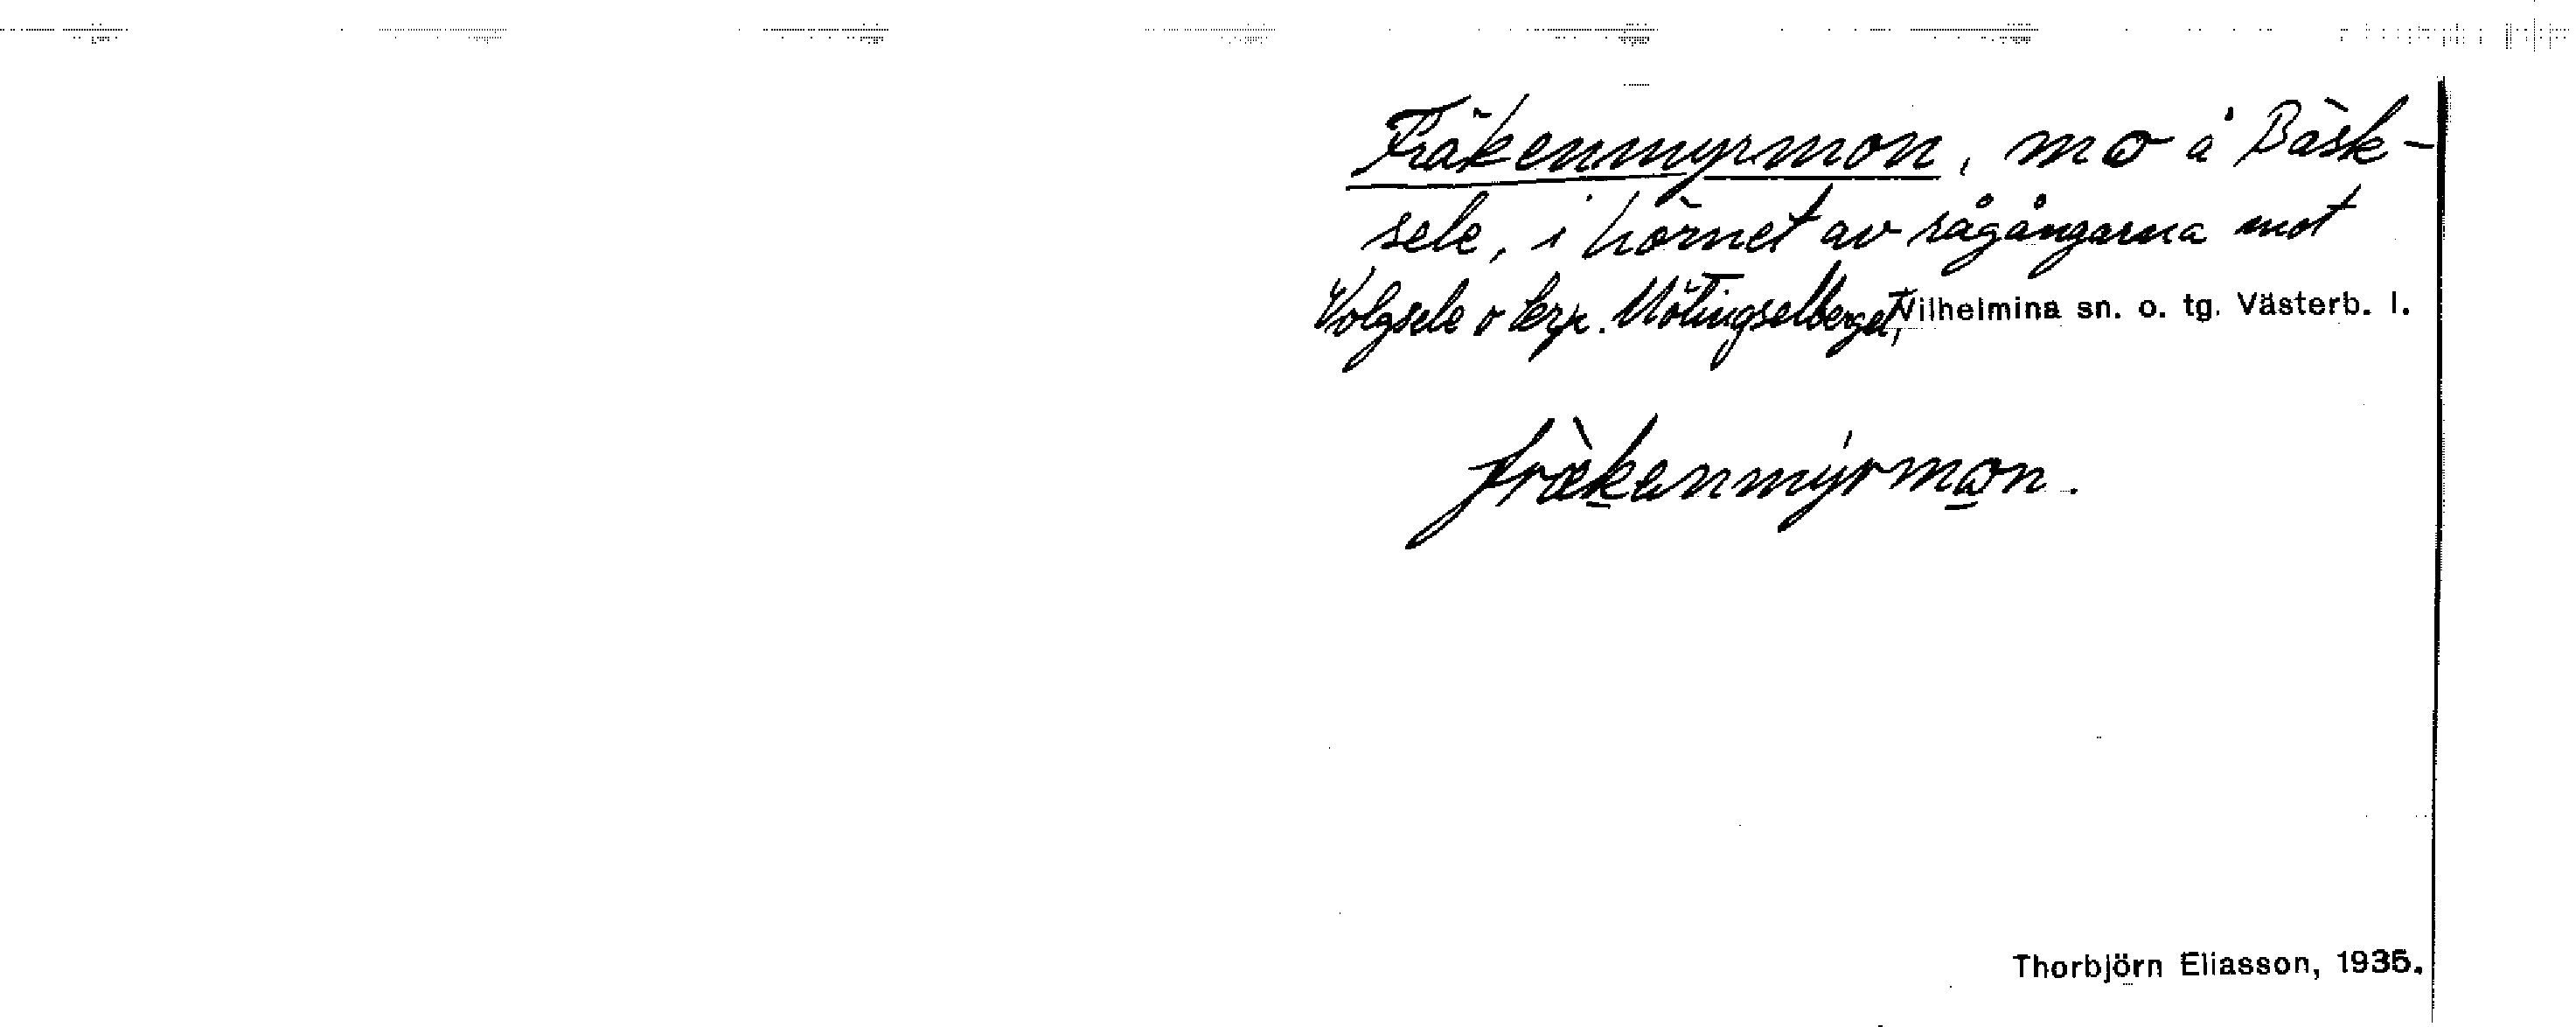 Fräkenmyrmon, mo å Bäsk-
sele, i hörnet av rågångarna mot
Volgsele o krp. Mötingselberget, Vilhelmina sn. o. tg. Västerb. l.
fræ̀kenmýrmon.
Thorbjörn Eliasson, 1936.